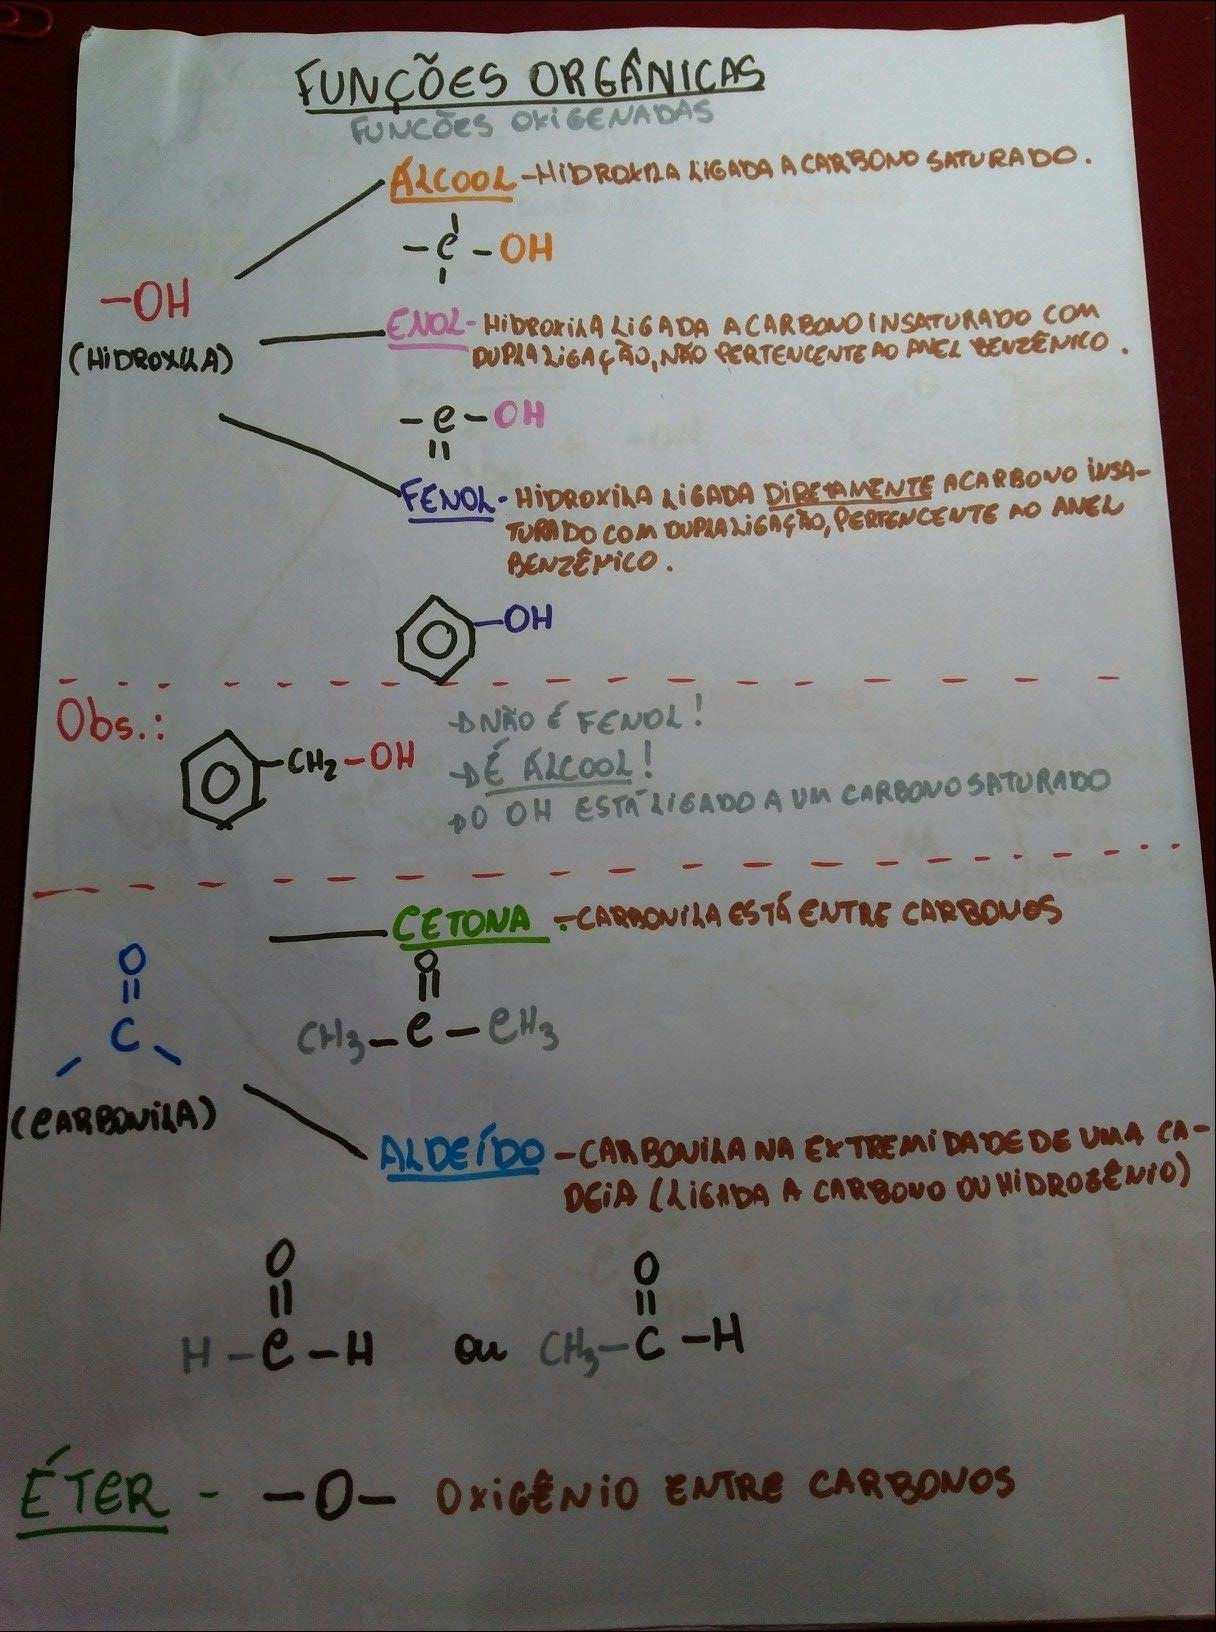 FUNÇÕES ORGÂNICAS
FUNCÕES OXIGENADAS
ÁLCOOL - HIDROXILA LIGADA A CARBONO SATURADO.
- C - OH
-OH
(HIDROXILA)
ENOL - HIDROXILA LIGADA A CARBONO INSATURADO COM
DUPLA LIGAÇÃO, NÃO PERTENCENTE AO ANEL BENZÊNICO.
- C - OH
=
FENOL - HIDROXILA LIGADA DIRETAMENTE A CARBONO INSA-
TURADO COM DUPLA LIGAÇÃO, PERTENCENTE AO ANEL
BENZÊNICO.
-OH
Obs.:
-CH2-OH
→ NÃO É FENOL!
→ É ÁLCOOL!
→ O OH ESTÁ LIGADO A UM CARBONO SATURADO
CETONA - CARBONILA ESTÁ ENTRE CARBONOS
O
=
CH3 - C - CH3
O
=
C
(CARBONILA)
ALDEÍDO - CARBONILA NA EXTREMIDADE DE UMA CA-
DEIA (LIGADA A CARBONO OU HIDROGÊNIO)
O O
= =
H - C - H ou CH3 - C - H
ÉTER - -O- OXIGÊNIO ENTRE CARBONOS